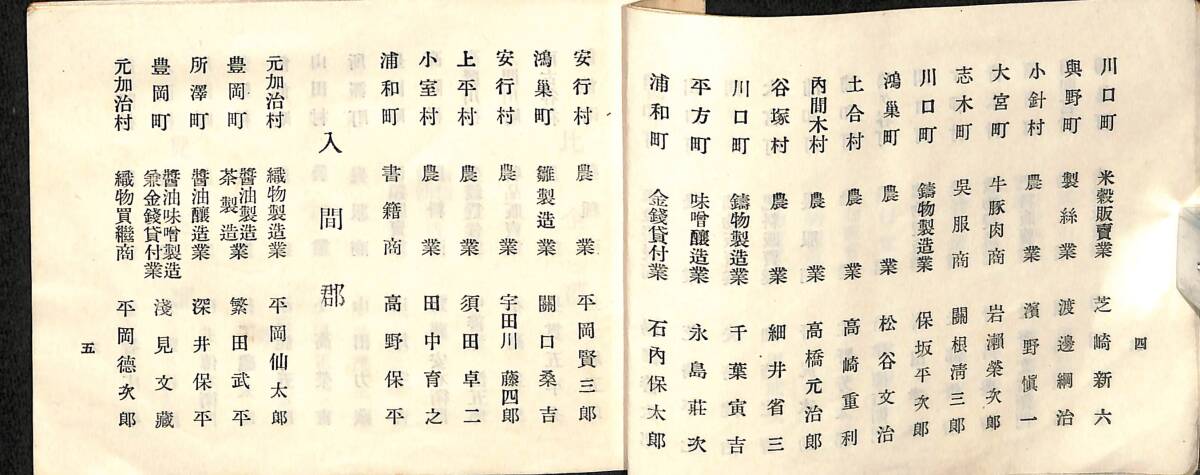 四
川口町 米穀販賣業 芝崎新六
與野町 製絲業 渡邊綱治
小針村 農業 濱野愼一
大宮町 牛豚肉商 岩瀨榮次郎
志木町 吳服商 關根淸三郎
川口町 鑄物製造業 保坂平次郎
鴻巢町 農業 松谷文治
土合村 農業 高崎重利
內間木村 農業 高橋元治郎
谷塚村 農業 細井省三
川口町 鑄物製造業 千葉寅吉
平方町 味噌釀造業 永島莊次
浦和町 金錢貸付業 石內保太郎
安行村 農業 平岡賢三郎
鴻巢町 雛製造業 關口桑吉
安行村 農業 宇田川藤四郎
上平村 農業 須田卓二
小室村 農業 田中育之
浦和町 書籍商 高野保平
入間郡
元加治村 織物製造業 平岡仙太郎
豊岡町 醬油製造業 茶製造 繁田武平
所澤町 醬油釀造業 深井保平
豊岡町 醬油味噌製造 兼金錢貸付業 淺見文藏
元加治村 織物買繼商 平岡德次郎
五